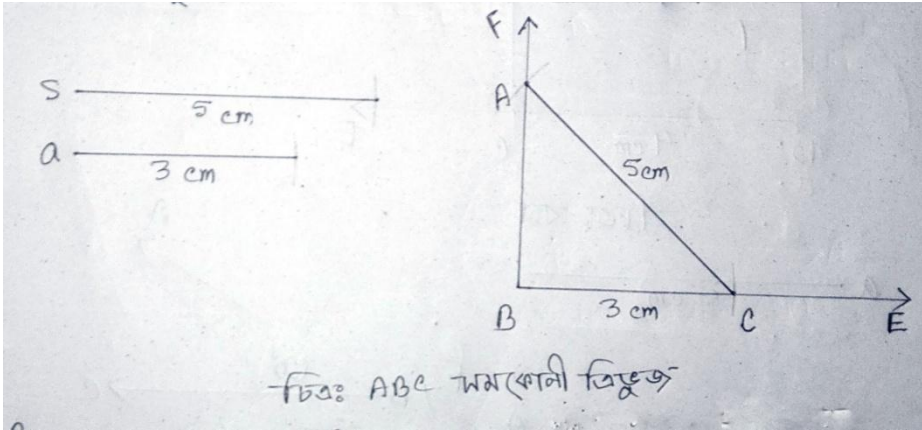 S
5 cm
a
3 cm
F
A
5cm
B
3 cm
C
E
চিত্রঃ ABC সমকোনী ত্রিভুজ